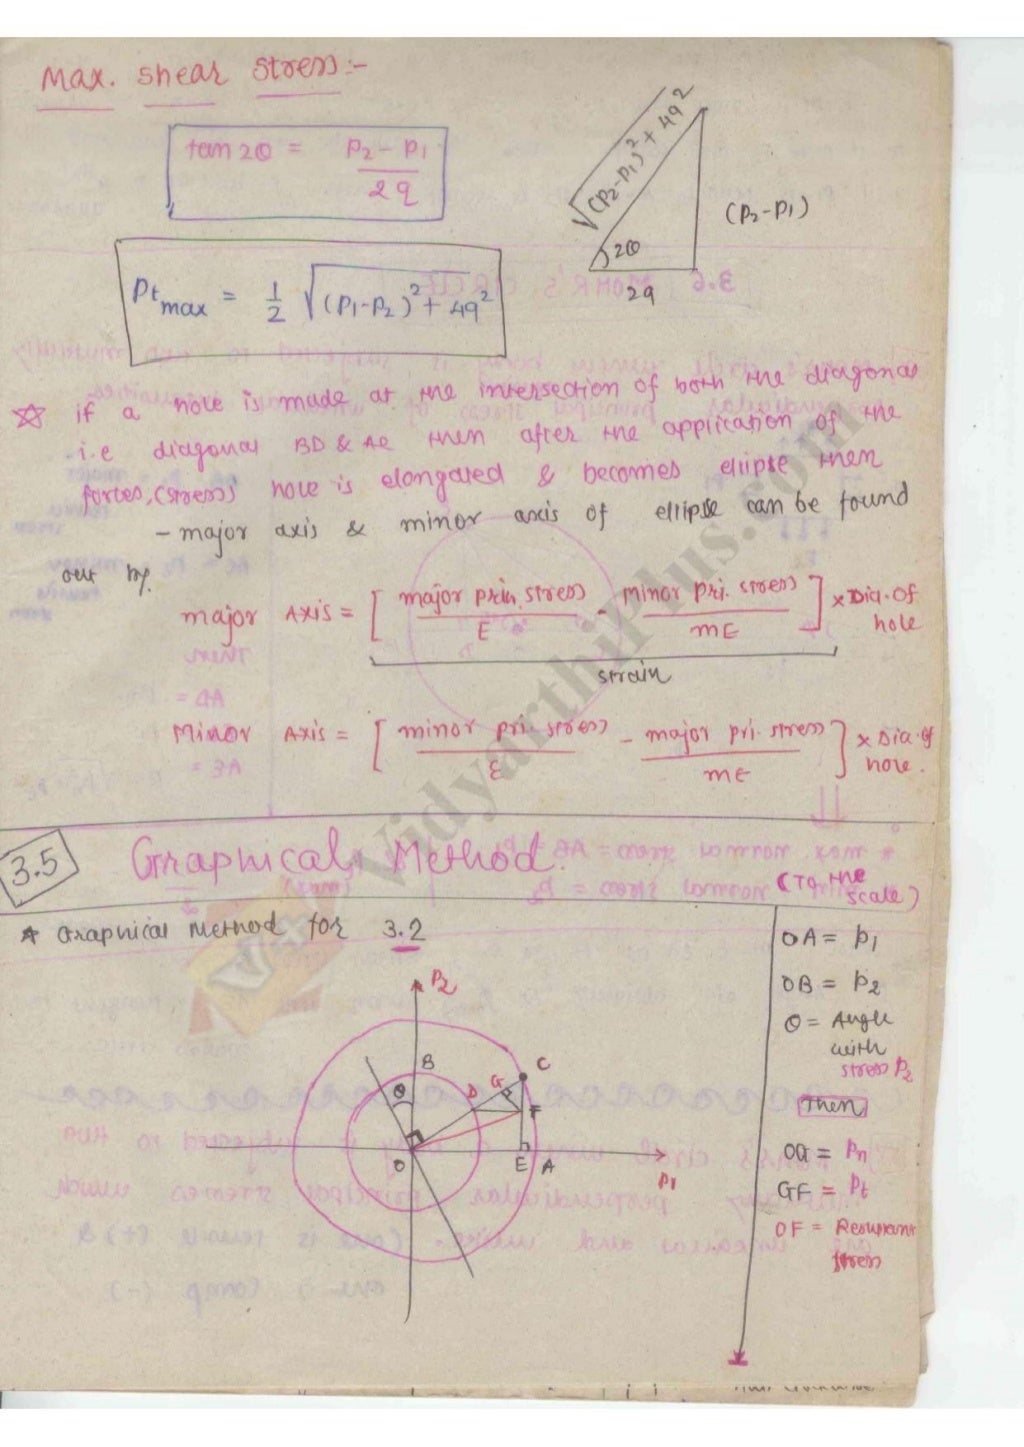 Max. shear stress:-
tan 2θ = P2 - P1 / 2q
√(P2-P1)² + 4q²
(P2-P1)
2θ
2q
Ptmax = 1/2 √(P1-P2)² + 4q²
☆ if a hole is made at the intersection of both the diagonal
i.e diagonal BD & AC then after the application of the
forces, (stress) hole is elongated & becomes ellipse then
- major axis & minor axis of ellipse can be found
out by.
major Axis = [ major prin. stress / E - minor pri. stress / mE ] × Dia. of hole
strain
Minor Axis = [ minor pri. stress / E - major pri. stress / mE ] × Dia. of hole.
3.5 Graphical Method.
(To the scale)
* Graphical Method for 3.2
P2
B
C
θ
D
G
F
O
E
A
P1
OA = P1
OB = P2
θ = Angle
with
stress P2
Then
OG = Pn
GF = Pt
OF = Resultant
stress
VidyarthiPlus.com